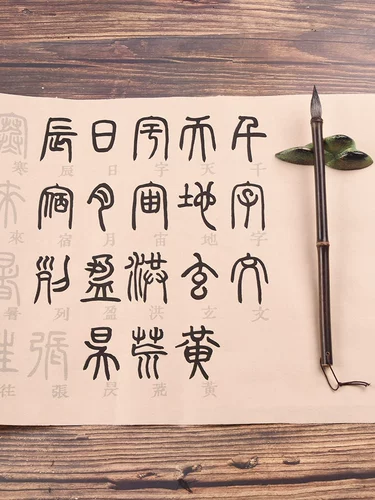 千字文
千字文
天地玄黃
天地玄黃
宇宙洪荒
宇宙洪荒
日月盈昃
日月盈昃
辰宿列張
辰宿列張
寒來暑往
寒來暑往